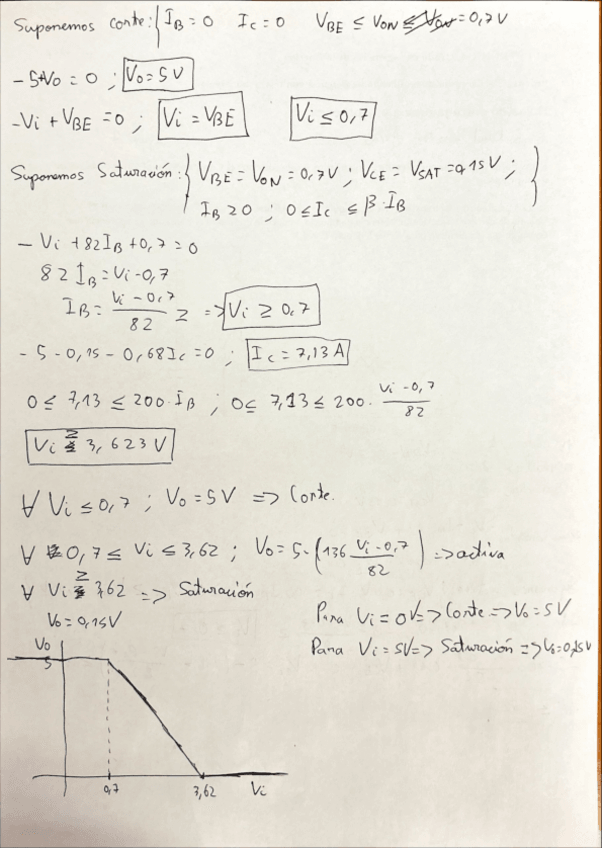 Suponemos corte: { I_B = 0 I_C = 0 V_BE ≤ V_ON = 0,7 V
- 5 + Vo = 0 ; Vo = 5 V
- Vi + V_BE = 0 ; Vi = V_BE Vi ≤ 0,7
Suponemos Saturación: { V_BE = V_ON = 0,7 V ; V_CE = V_SAT = 0,15 V ; }
I_B ≥ 0 ; 0 ≤ I_C ≤ β · I_B
- Vi + 82 I_B + 0,7 = 0
82 I_B = Vi - 0,7
I_B = (Vi - 0,7)/82 ≥ => Vi ≥ 0,7
- 5 - 0,15 - 0,68 I_C = 0 ; I_C = 7,13 A
0 ≤ 7,13 ≤ 200 · I_B ; 0 ≤ 7,13 ≤ 200 · (Vi - 0,7)/82
Vi ≥ 3,623 V
∀ Vi ≤ 0,7 ; Vo = 5 V => Corte.
∀ 0,7 ≤ Vi ≤ 3,62 ; Vo = 5 - (136 (Vi - 0,7)/82) => activa
∀ Vi ≥ 3,62 => Saturación
Vo = 0,15 V
Para Vi = 0V => Corte => Vo = 5V
Para Vi = 5V => Saturación => Vo = 0,15V
Vo
5
0,7 3,62 Vi